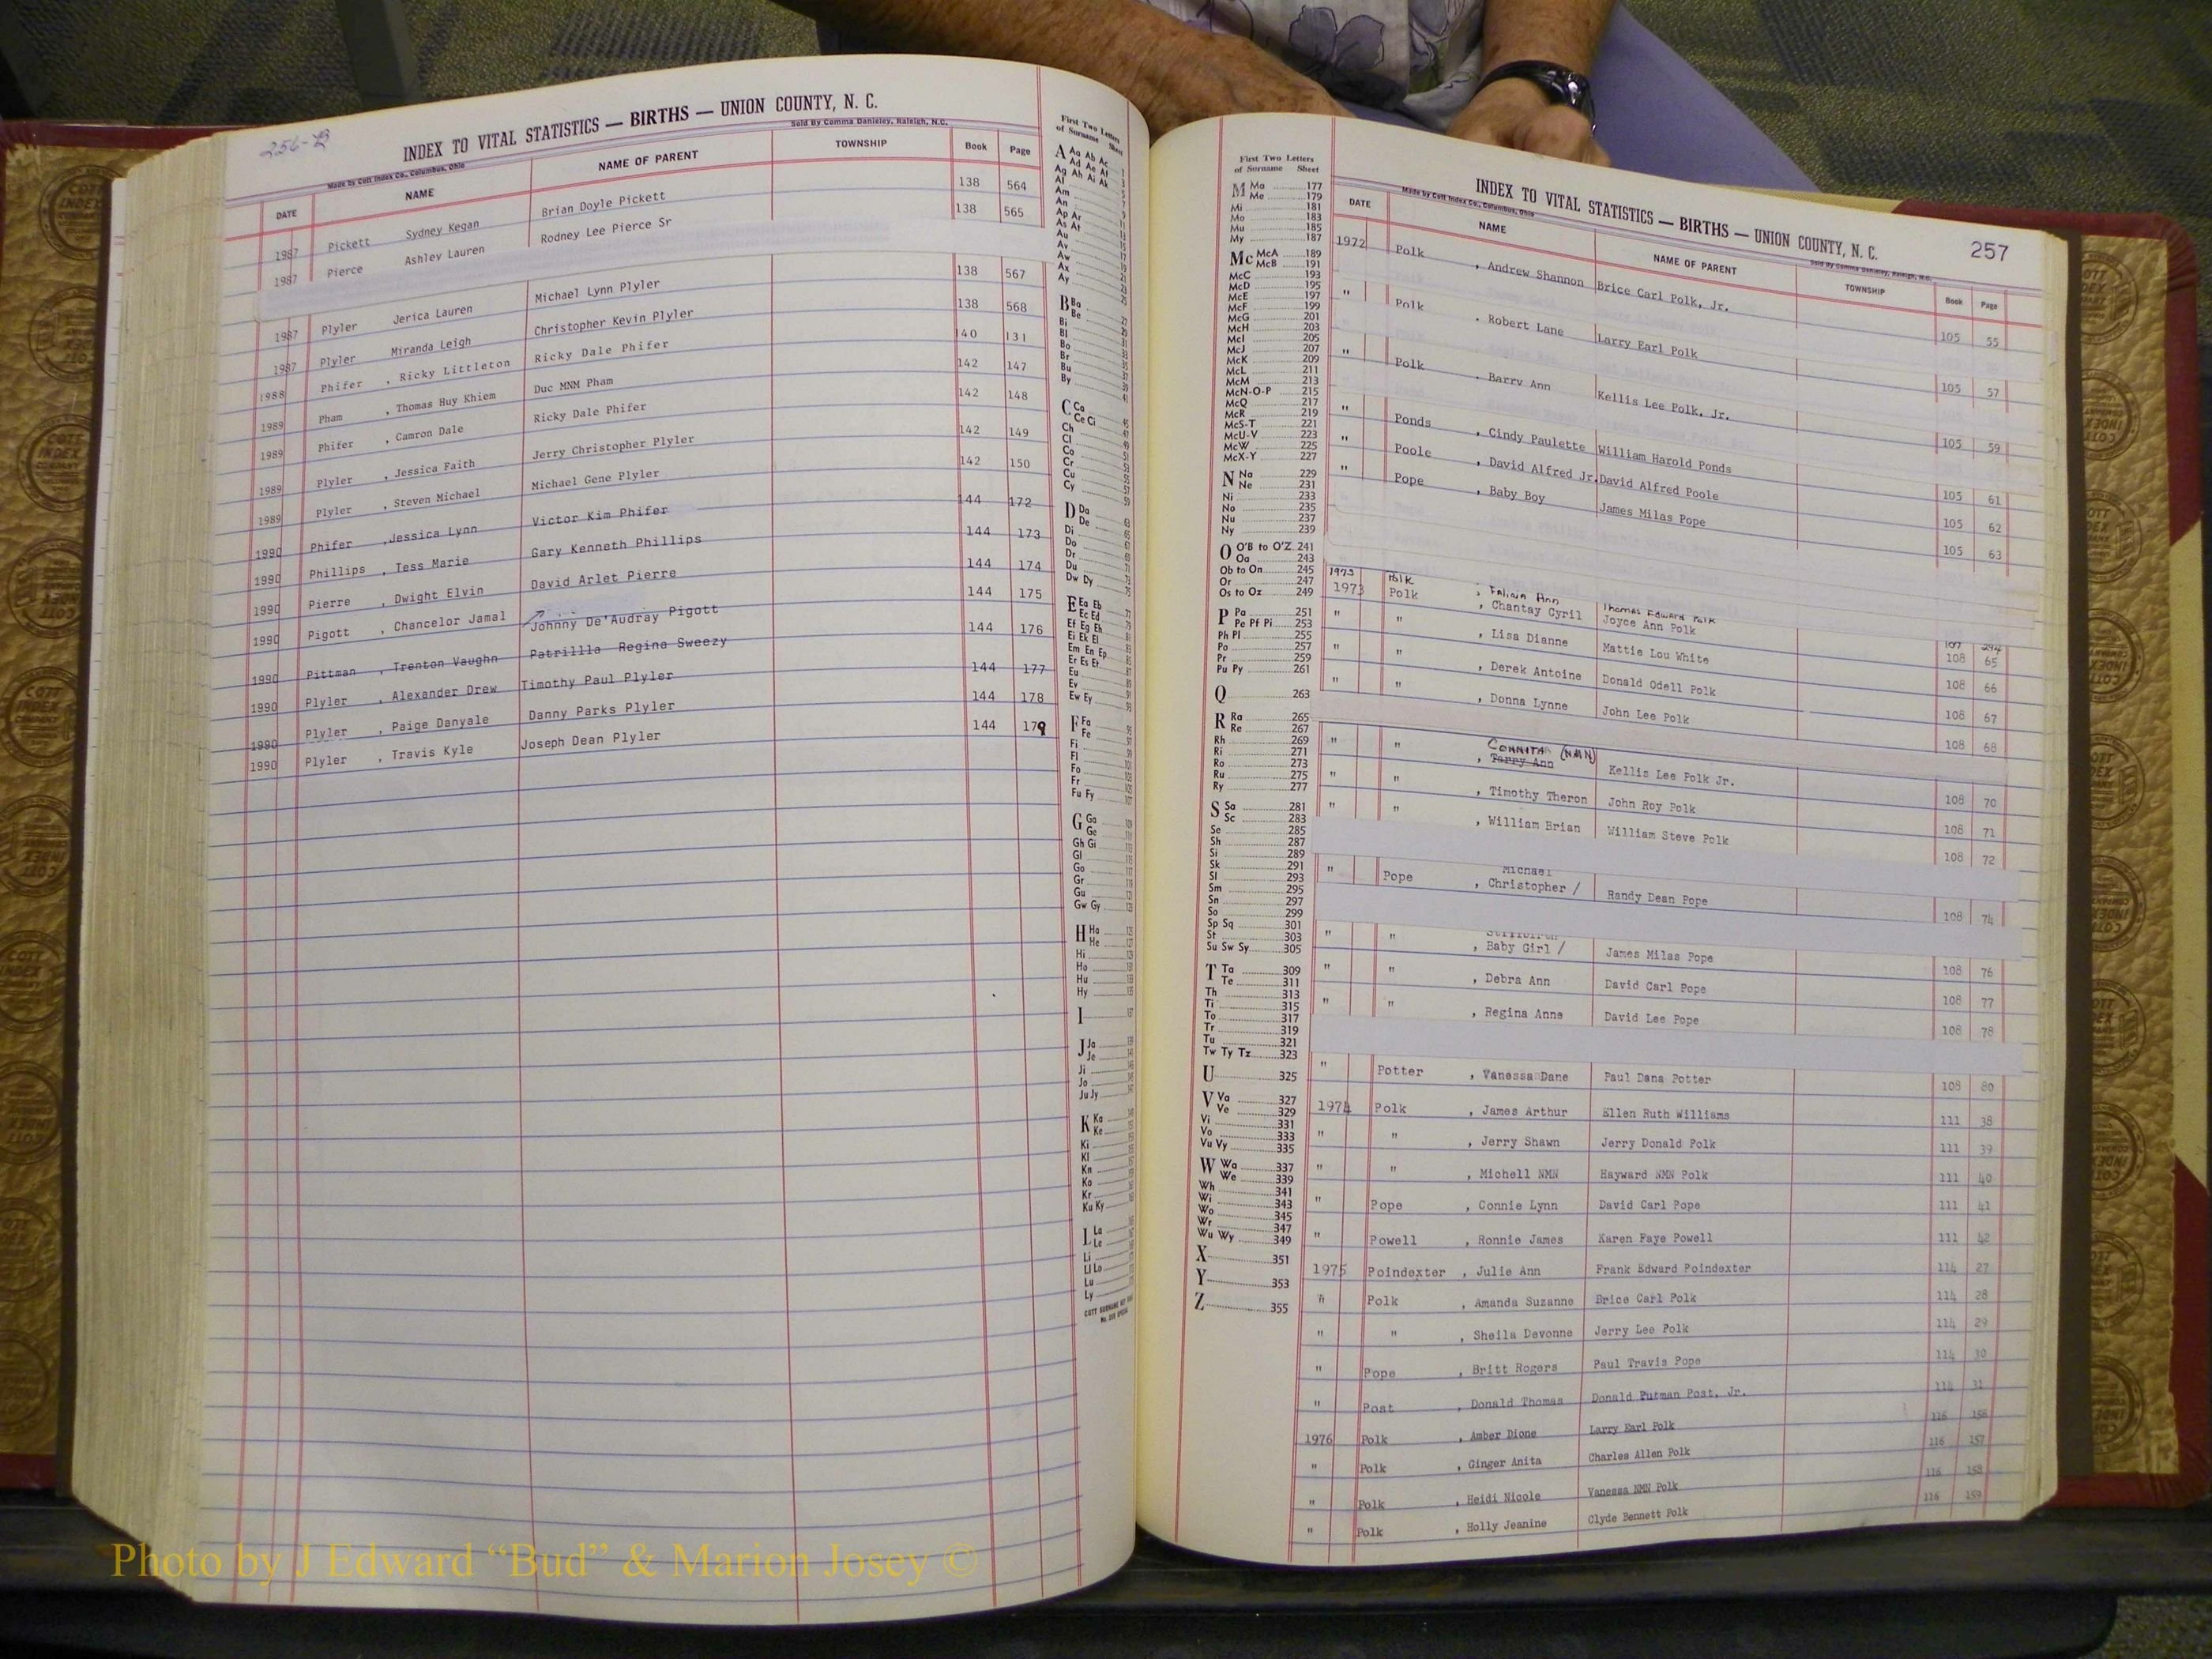 256-B
INDEX TO VITAL STATISTICS — BIRTHS — UNION COUNTY, N. C.
Made by Cott Index Co., Columbus, Ohio
Sold By Comma Danieley, Raleigh, N.C.
DATE NAME NAME OF PARENT TOWNSHIP Book Page
1987 Pickett Sydney Kegan Brian Doyle Pickett 138 564
1987 Pierce Ashley Lauren Rodney Lee Pierce Sr 138 565
1987 Plyler Jerica Lauren Michael Lynn Plyler 138 567
1987 Plyler Miranda Leigh Christopher Kevin Plyler 138 568
1988 Phifer , Ricky Littleton Ricky Dale Phifer 140 131
1989 Pham , Thomas Huy Khiem Duc MNM Pham 142 147
1989 Phifer , Camron Dale Ricky Dale Phifer 142 148
1989 Plyler , Jessica Faith Jerry Christopher Plyler 142 149
1989 Plyler , Steven Michael Michael Gene Plyler 142 150
1990 Phifer , Jessica Lynn Victor Kim Phifer 144 172
1990 Phillips , Tess Marie Gary Kenneth Phillips 144 173
1990 Pierre , Dwight Elvin David Arlet Pierre 144 174
1990 Pigott , Chancelor Jamal Johnny De'Audray Pigott 144 175
1990 Pittman , Trenton Vaughn Patrillla Regina Sweezy 144 176
1990 Plyler , Alexander Drew Timothy Paul Plyler 144 177
1990 Plyler , Paige Danyale Danny Parks Plyler 144 178
1990 Plyler , Travis Kyle Joseph Dean Plyler 144 179
First Two Letters of Surname Sheet
A Aa Ab Ac
Ad Ae Af
Ag Ah Ai Ak
Al
Am
An
Ap Ar
As At
Au
Av
Aw
Ax
Ay
B Ba
Be
Bi
Bl
Bo
Br
Bu
By
C Ca
Ce Ci
Ch
Cl
Co
Cr
Cu
Cy
D Da
De
Di
Do
Dr
Du
Dw Dy
E Ea Eb
Ec Ed
Ef Eg Eh
Ei Ek El
Em En Ep
Er Es Et
Eu
Ev
Ew Ey
F Fa
Fe
Fi
Fl
Fo
Fr
Fu Fy
G Ga
Ge
Gh Gi
Gl
Go
Gr
Gu
Gw Gy
H Ha
He
Hi
Ho
Hu
Hy
I
J Ja
Je
Ji
Jo
Ju Jy
K Ka
Ke
Ki
Kl
Kn
Ko
Kr
Ku Ky
L La
Le
Li
Ll Lo
Lu
Ly
First Two Letters of Surname Sheet
M Ma 177
Me 179
Mi 181
Mo 183
Mu 185
My 187
Mc McA 189
McB 191
McC 193
McD 195
McE 197
McF 199
McG 201
McH 203
McI 205
McJ 207
McK 209
McL 211
McM 213
McN-O-P 215
McQ 217
McR 219
McS-T 221
McU-V 223
McW 225
McX-Y 227
N Na 229
Ne 231
Ni 233
No 235
Nu 237
Ny 239
O O'B to O'Z 241
Oa 243
Ob to On 245
Or 247
Os to Oz 249
P Pa 251
Pe Pf Pi 253
Ph Pl 255
Po 257
Pr 259
Pu Py 261
Q 263
R Ra 265
Re 267
Rh 269
Ri 271
Ro 273
Ru 275
Ry 277
S Sa 281
Sc 283
Se 285
Sh 287
Si 289
Sk 291
Sl 293
Sm 295
Sn 297
So 299
Sp Sq 301
St 303
Su Sw Sy 305
T Ta 309
Te 311
Th 313
Ti 315
To 317
Tr 319
Tu 321
Tw Ty Tz 323
U 325
V Va 327
Ve 329
Vi 331
Vo 333
Vu Vy 335
W Wa 337
We 339
Wh 341
Wi 343
Wo 345
Wr 347
Wu Wy 349
X 351
Y 353
Z 355
INDEX TO VITAL STATISTICS — BIRTHS — UNION COUNTY, N. C. 257
Made by Cott Index Co., Columbus, Ohio
Sold By Comma Danieley, Raleigh, N.C.
DATE NAME NAME OF PARENT TOWNSHIP Book Page
1972 Polk , Andrew Shannon Brice Carl Polk, Jr. 105 55
" Polk , Robert Lane Larry Earl Polk 105 57
" Polk , Barry Ann Kellis Lee Polk, Jr. 105 59
" Ponds , Cindy Paulette William Harold Ponds 105 61
" Poole , David Alfred Jr. David Alfred Poole 105 62
" Pope , Baby Boy James Milas Pope 105 63
1973 Polk , Ann Thomas Edward Polk 107
1973 Polk , Chantay Cyril Joyce Ann Polk 108 65
" " , Lisa Dianne Mattie Lou White 108 66
" " , Derek Antoine Donald Odell Polk 108 67
" " , Donna Lynne John Lee Polk 108 68
" " Connita (NMN) , Terry Ann Kellis Lee Polk Jr. 108 70
" " , Timothy Theron John Roy Polk 108 71
" " , William Brian William Steve Polk 108 72
" Pope , Christopher / Michael Randy Dean Pope 108 74
" " , Baby Girl / Stillbirth James Milas Pope 108 76
" " , Debra Ann David Carl Pope 108 77
" " , Regina Anne David Lee Pope 108 78
" Potter , Vanessa Dane Paul Dana Potter 108 80
1974 Polk , James Arthur Ellen Ruth Williams 111 38
" " , Jerry Shawn Jerry Donald Polk 111 39
" " , Michell NMN Hayward NMN Polk 111 40
" Pope , Connie Lynn David Carl Pope 111 41
" Powell , Ronnie James Karen Faye Powell 111 42
1975 Poindexter , Julie Ann Frank Edward Poindexter 114 27
" Polk , Amanda Suzanne Brice Carl Polk 114 28
" " , Sheila Devonne Jerry Lee Polk 114 29
" Pope , Britt Rogers Paul Travis Pope 114 30
" Post , Donald Thomas Donald Putman Post, Jr. 114 31
1976 Polk , Amber Dione Larry Earl Polk 116 156
" Polk , Ginger Anita Charles Allen Polk 116 157
" Polk , Heidi Nicole Vanessa NMN Polk 116 158
" Polk , Holly Jeanine Clyde Bennett Polk 116 159
Photo by J Edward “Bud” & Marion Josey ©